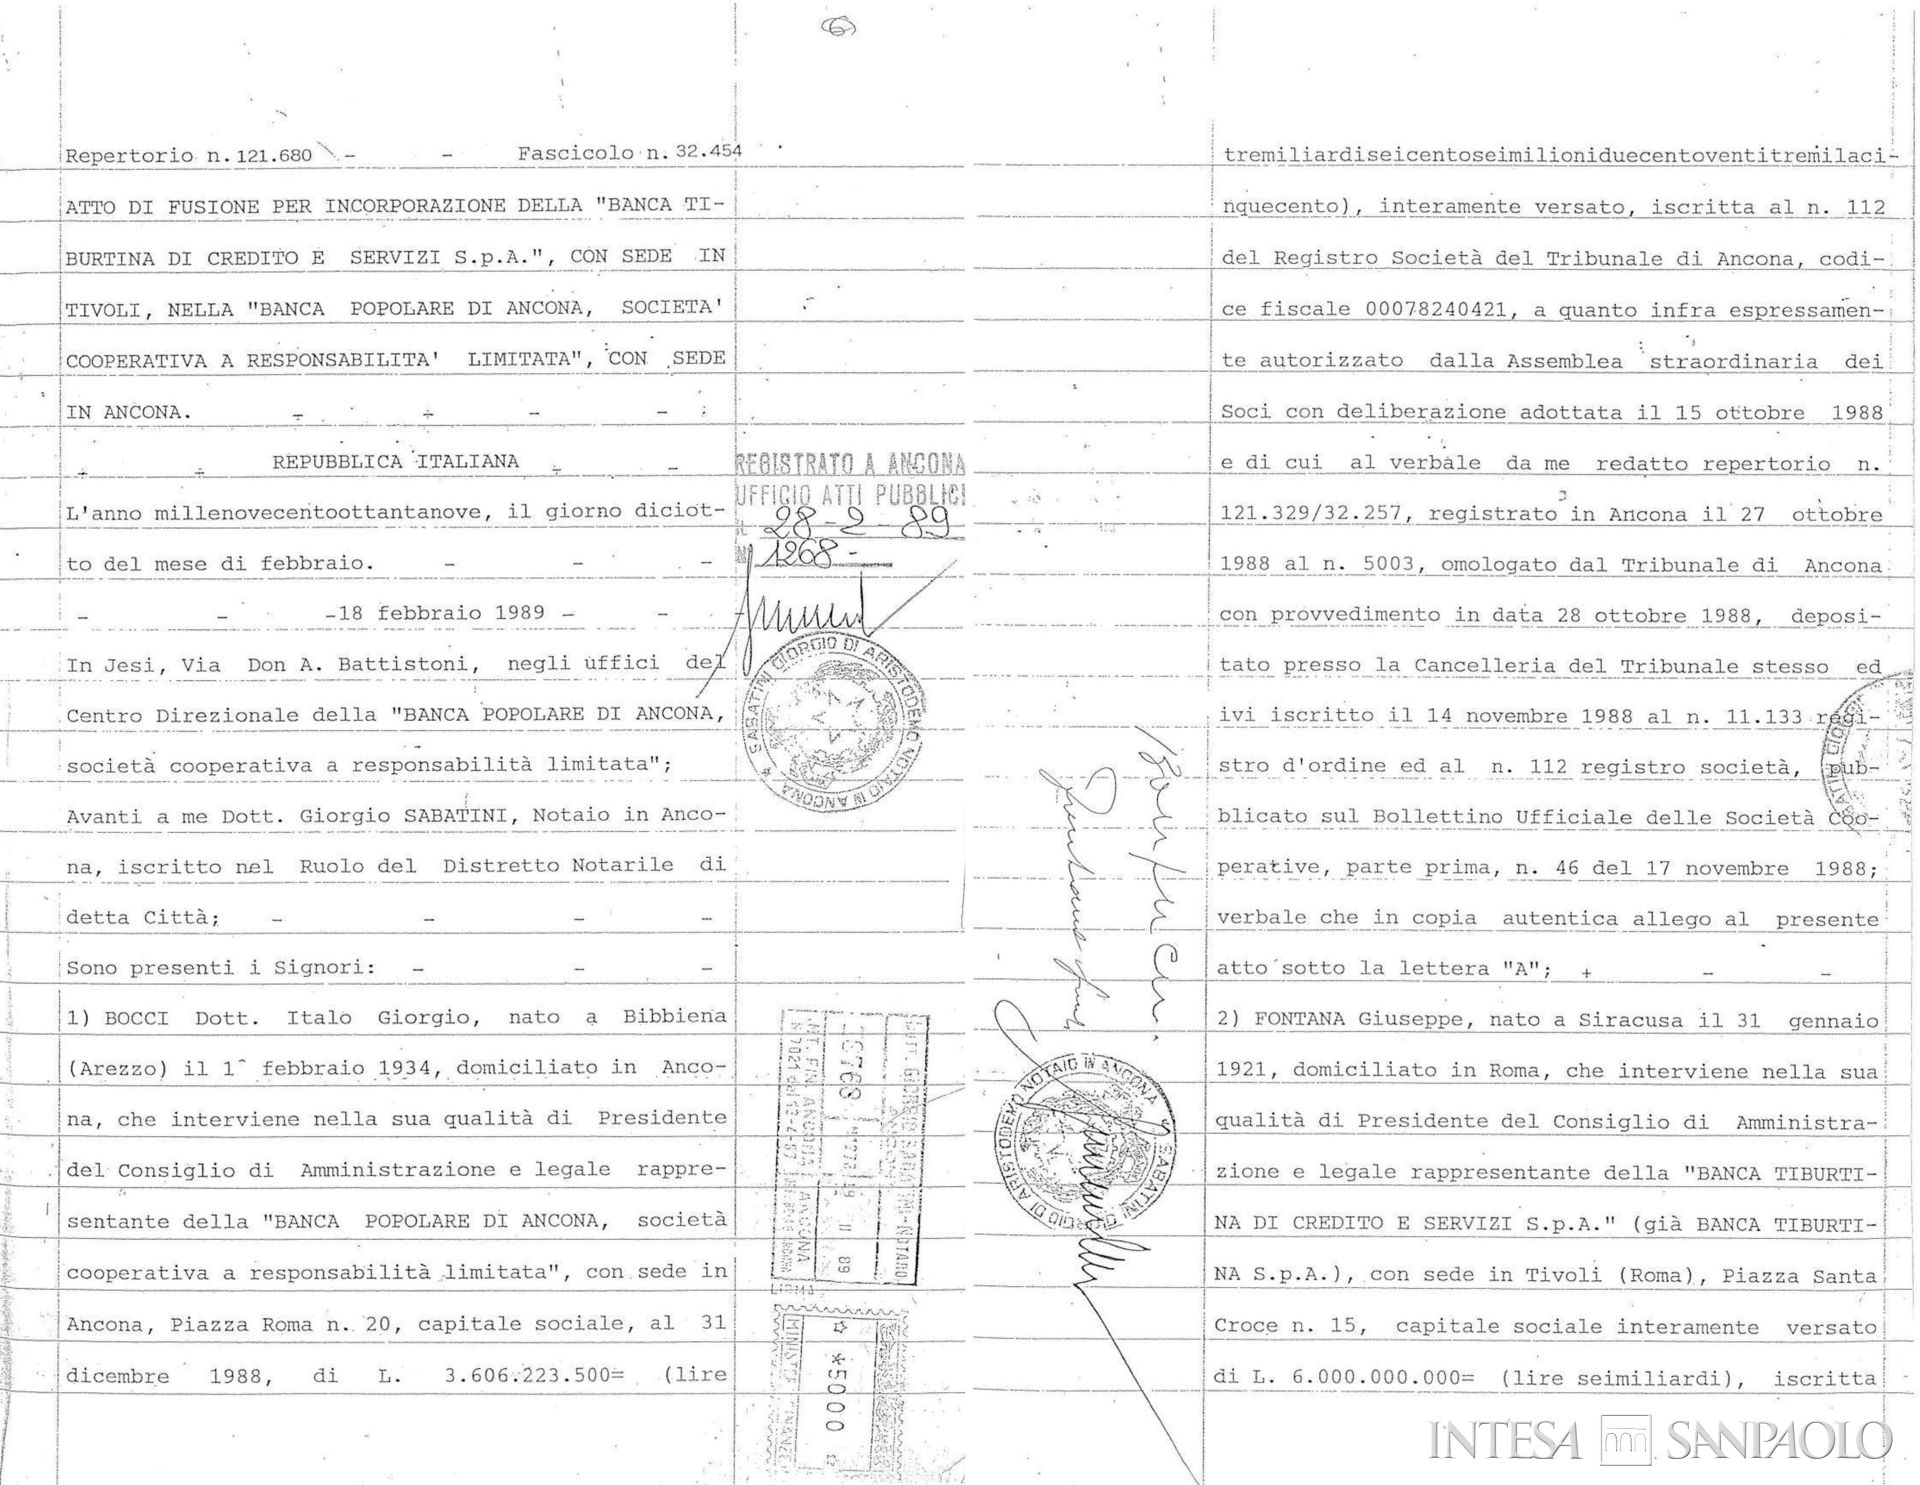 6
Repertorio n.121.680 - - Fascicolo n.32.454
ATTO DI FUSIONE PER INCORPORAZIONE DELLA "BANCA TI-
BURTINA DI CREDITO E SERVIZI S.p.A.", CON SEDE IN
TIVOLI, NELLA "BANCA POPOLARE DI ANCONA, SOCIETA'
COOPERATIVA A RESPONSABILITA' LIMITATA", CON SEDE
IN ANCONA. - - - -
- - REPUBBLICA ITALIANA - -
L'anno millenovecentoottantanove, il giorno diciot-
to del mese di febbraio. - - -
- - -18 febbraio 1989 - - -
In Jesi, Via Don A. Battistoni, negli uffici del
Centro Direzionale della "BANCA POPOLARE DI ANCONA,
società cooperativa a responsabilità limitata";
Avanti a me Dott. Giorgio SABATINI, Notaio in Anco-
na, iscritto nel Ruolo del Distretto Notarile di
detta Città; - - - -
Sono presenti i Signori: - - -
1) BOCCI Dott. Italo Giorgio, nato a Bibbiena
(Arezzo) il 1^ febbraio 1934, domiciliato in Anco-
na, che interviene nella sua qualità di Presidente
del Consiglio di Amministrazione e legale rappre-
sentante della "BANCA POPOLARE DI ANCONA, società
cooperativa a responsabilità limitata", con sede in
Ancona, Piazza Roma n. 20, capitale sociale, al 31
dicembre 1988, di L. 3.606.223.500= (lire
REGISTRATO A ANCONA
UFFICIO ATTI PUBBLICI
IL 28-2-89
N. 1268-
SABATINI GIORGIO DI ARISTODEMO NOTAIO IN ANCONA
DOTT. GIORGIO SABATINI - NOTARO
ANCONA
II 89
INT. FIN. ANCONA
*5000
tremiliardiseicentoseimilioniduecentoventitremilaci-
nquecento), interamente versato, iscritta al n. 112
del Registro Società del Tribunale di Ancona, codi-
ce fiscale 00078240421, a quanto infra espressamen-
te autorizzato dalla Assemblea straordinaria dei
Soci con deliberazione adottata il 15 ottobre 1988
e di cui al verbale da me redatto repertorio n.
121.329/32.257, registrato in Ancona il 27 ottobre
1988 al n. 5003, omologato dal Tribunale di Ancona
con provvedimento in data 28 ottobre 1988, deposi-
tato presso la Cancelleria del Tribunale stesso ed
ivi iscritto il 14 novembre 1988 al n. 11.133 regi-
stro d'ordine ed al n. 112 registro società, pub-
blicato sul Bollettino Ufficiale delle Società Coo-
perative, parte prima, n. 46 del 17 novembre 1988;
verbale che in copia autentica allego al presente
atto sotto la lettera "A"; + - -
2) FONTANA Giuseppe, nato a Siracusa il 31 gennaio
1921, domiciliato in Roma, che interviene nella sua
qualità di Presidente del Consiglio di Amministra-
zione e legale rappresentante della "BANCA TIBURTI-
NA DI CREDITO E SERVIZI S.p.A." (già BANCA TIBURTI-
NA S.p.A.), con sede in Tivoli (Roma), Piazza Santa
Croce n. 15, capitale sociale interamente versato
di L. 6.000.000.000= (lire seimiliardi), iscritta
SABATINI GIORGIO DI ARISTODEMO NOTAIO IN ANCONA
INTESA SANPAOLO